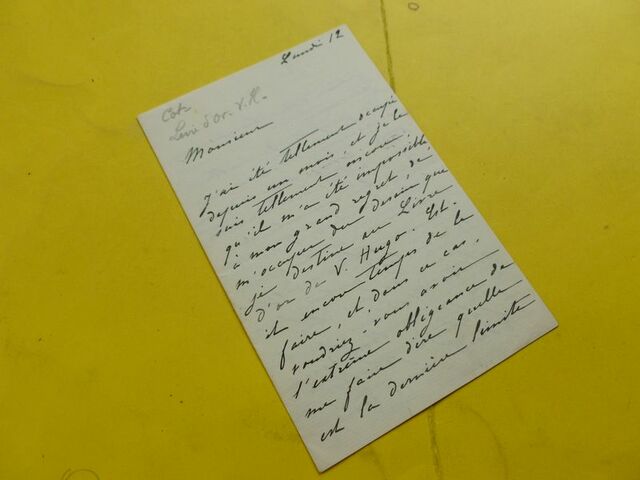 Lundi 12
Cot
Livre d'or. V. H.
Monsieur
J'ai été tellement occupé
depuis un mois, et je le
suis tellement encore,
qu'il m'a été impossible,
à mon grand regret, de
m'occuper du dessin que
je destine au Livre
d'or de V. Hugo. Est-
il encore temps de le
faire, et, dans ce cas,
voudriez-vous avoir
l'extrême obligeance de
me faire dire quelle
est la dernière limite